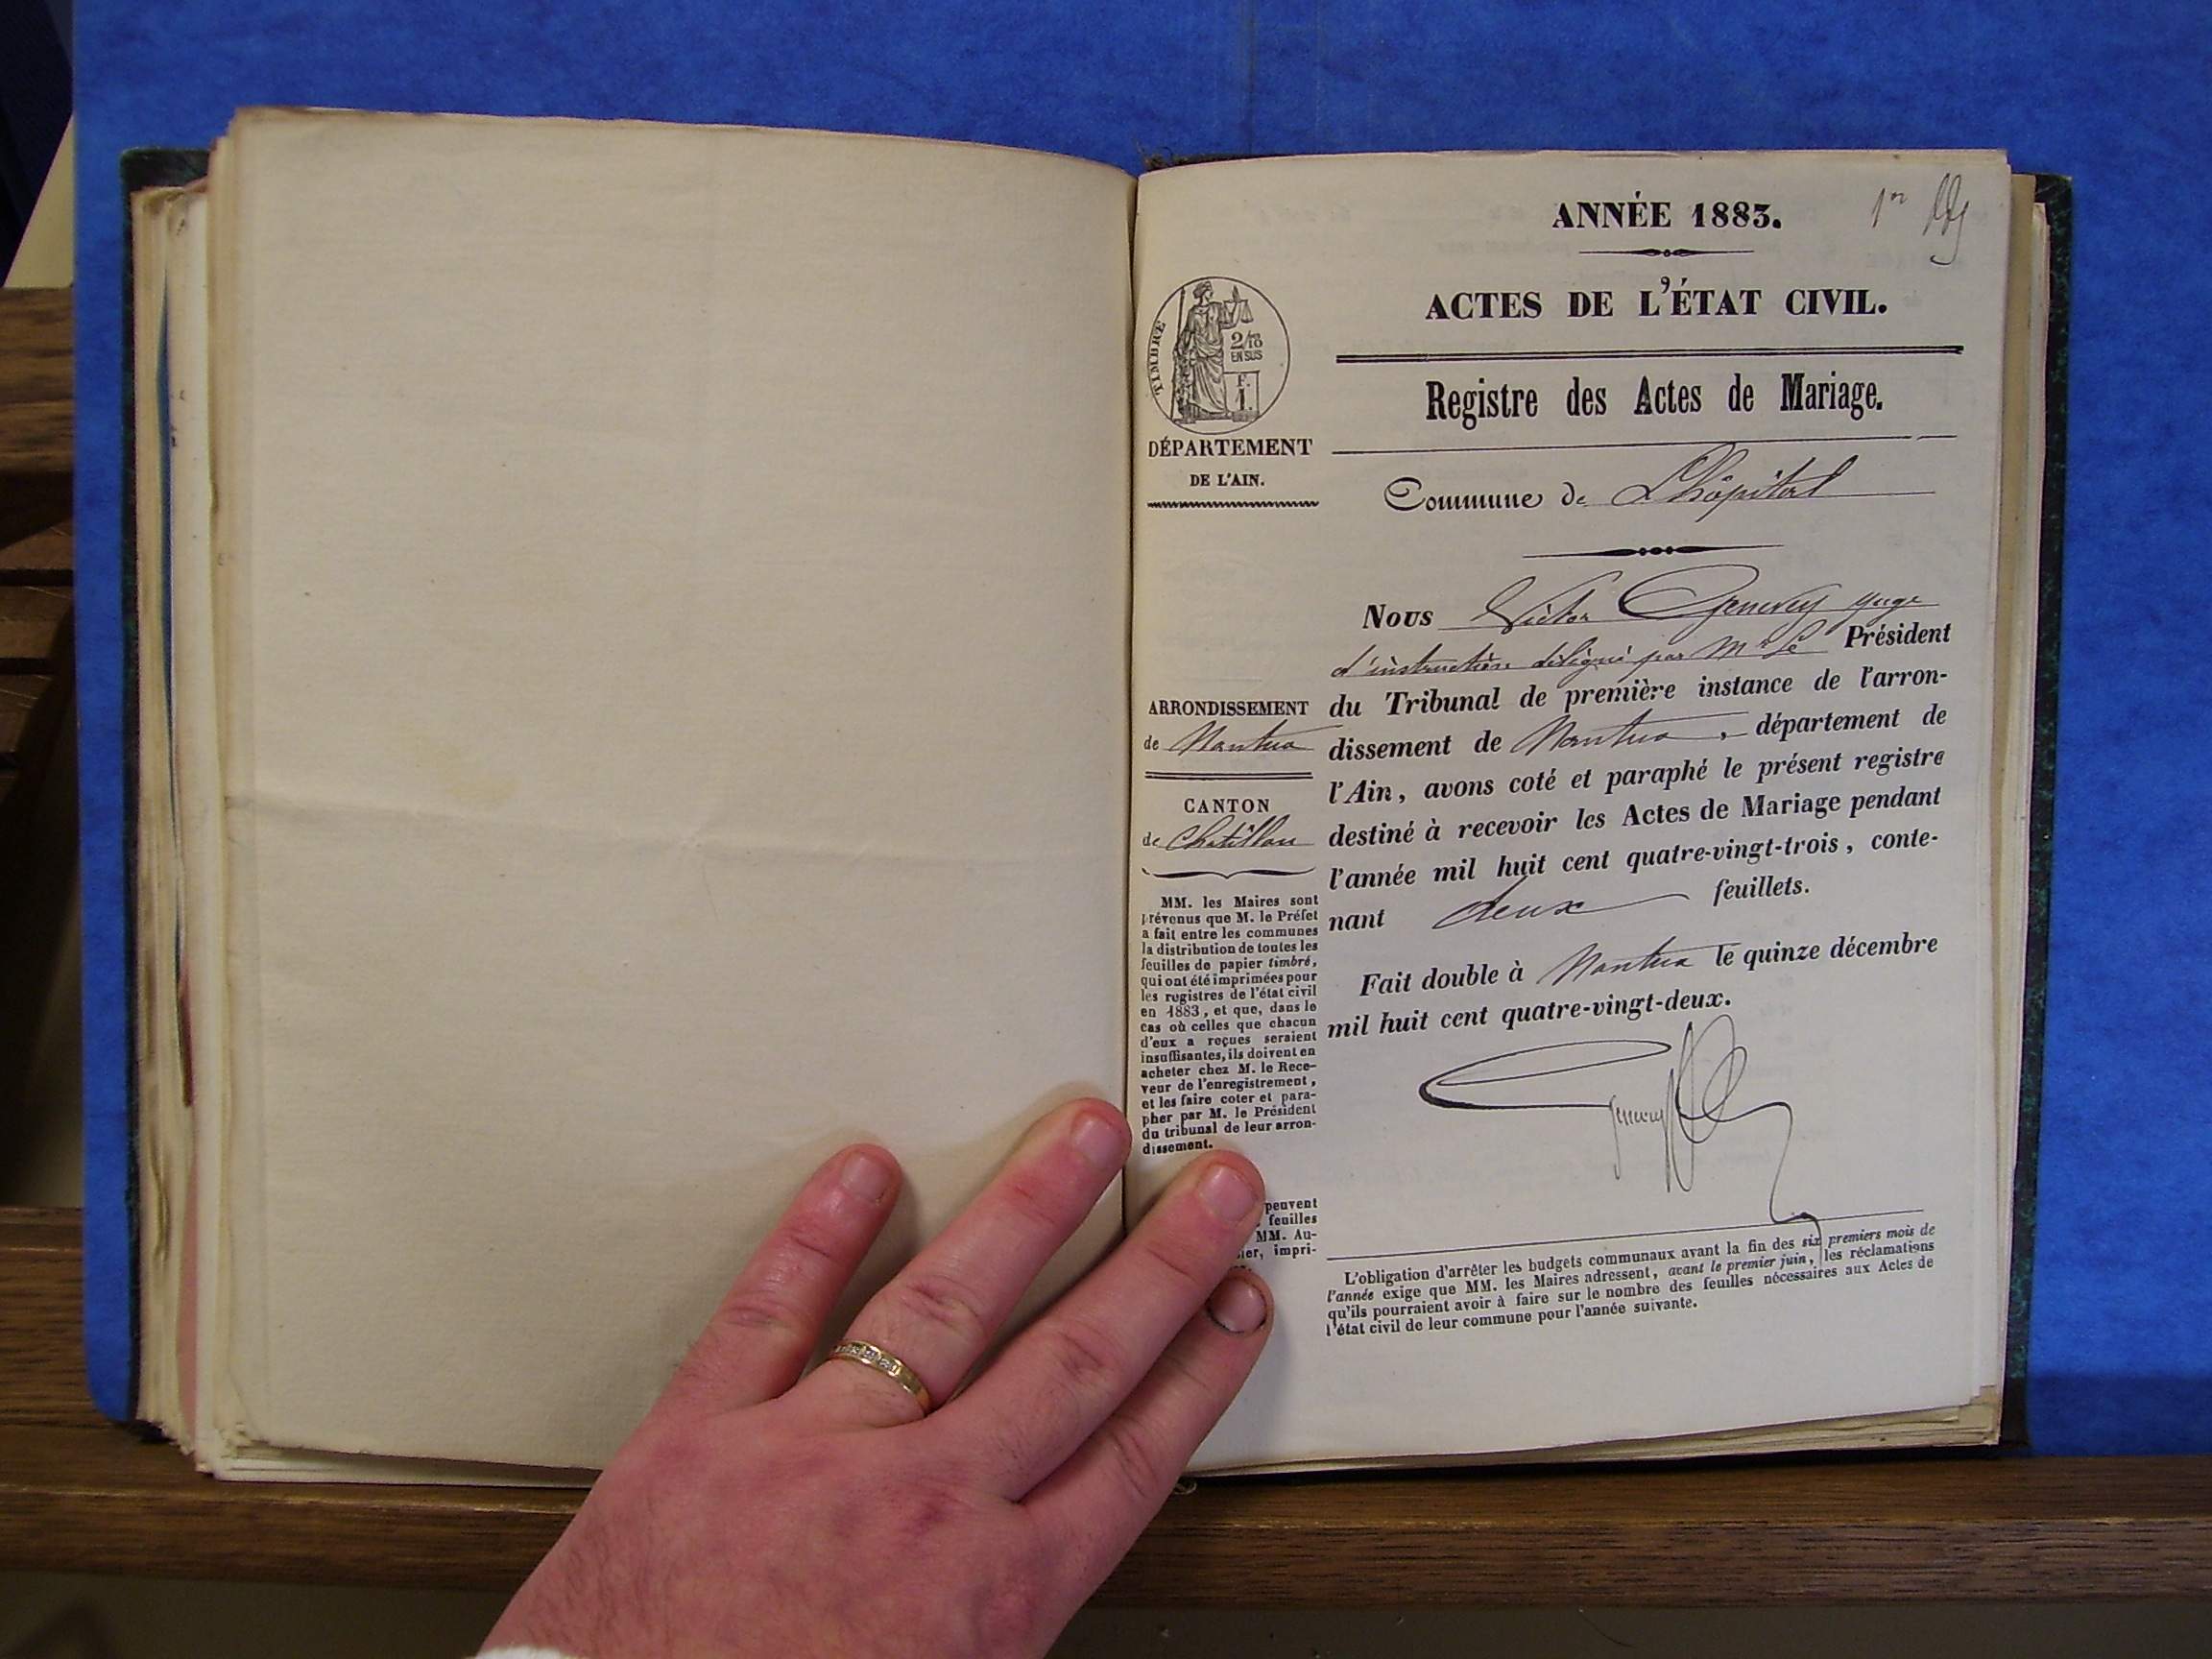 ANNÉE 1883.
1er
ACTES DE L'ÉTAT CIVIL.
TIMBRE
2/10
EN SUS
F.
1.
Registre des Actes de Mariage.
DÉPARTEMENT
DE L'AIN.
Commune de Lhôpital
Nous Victor Genevey Juge
d'instruction délégué par Mr Le Président
du Tribunal de première instance de l'arron-
dissement de Nantua, département de
l'Ain, avons coté et paraphé le présent registre
destiné à recevoir les Actes de Mariage pendant
l'année mil huit cent quatre-vingt-trois, conte-
nant deux feuillets.
Fait double à Nantua le quinze décembre
mil huit cent quatre-vingt-deux.
Genevey
ARRONDISSEMENT
de Nantua
CANTON
de Chatillon
MM. les Maires sont
prévenus que M. le Préfet
a fait entre les communes
la distribution de toutes les
feuilles de papier timbré,
qui ont été imprimées pour
les registres de l'état civil
en 1883, et que, dans le
cas où celles que chacun
d'eux a reçues seraient
insuffisantes, ils doivent en
acheter chez M. le Rece-
veur de l'enregistrement,
et les faire coter et para-
pher par M. le Président
du tribunal de leur arron-
dissement.
peuvent
feuilles
MM. Au-
impri-
L'obligation d'arrêter les budgets communaux avant la fin des six premiers mois de
l'année exige que MM. les Maires adressent, avant le premier juin, les réclamations
qu'ils pourraient avoir à faire sur le nombre des feuilles nécessaires aux Actes de
l'état civil de leur commune pour l'année suivante.